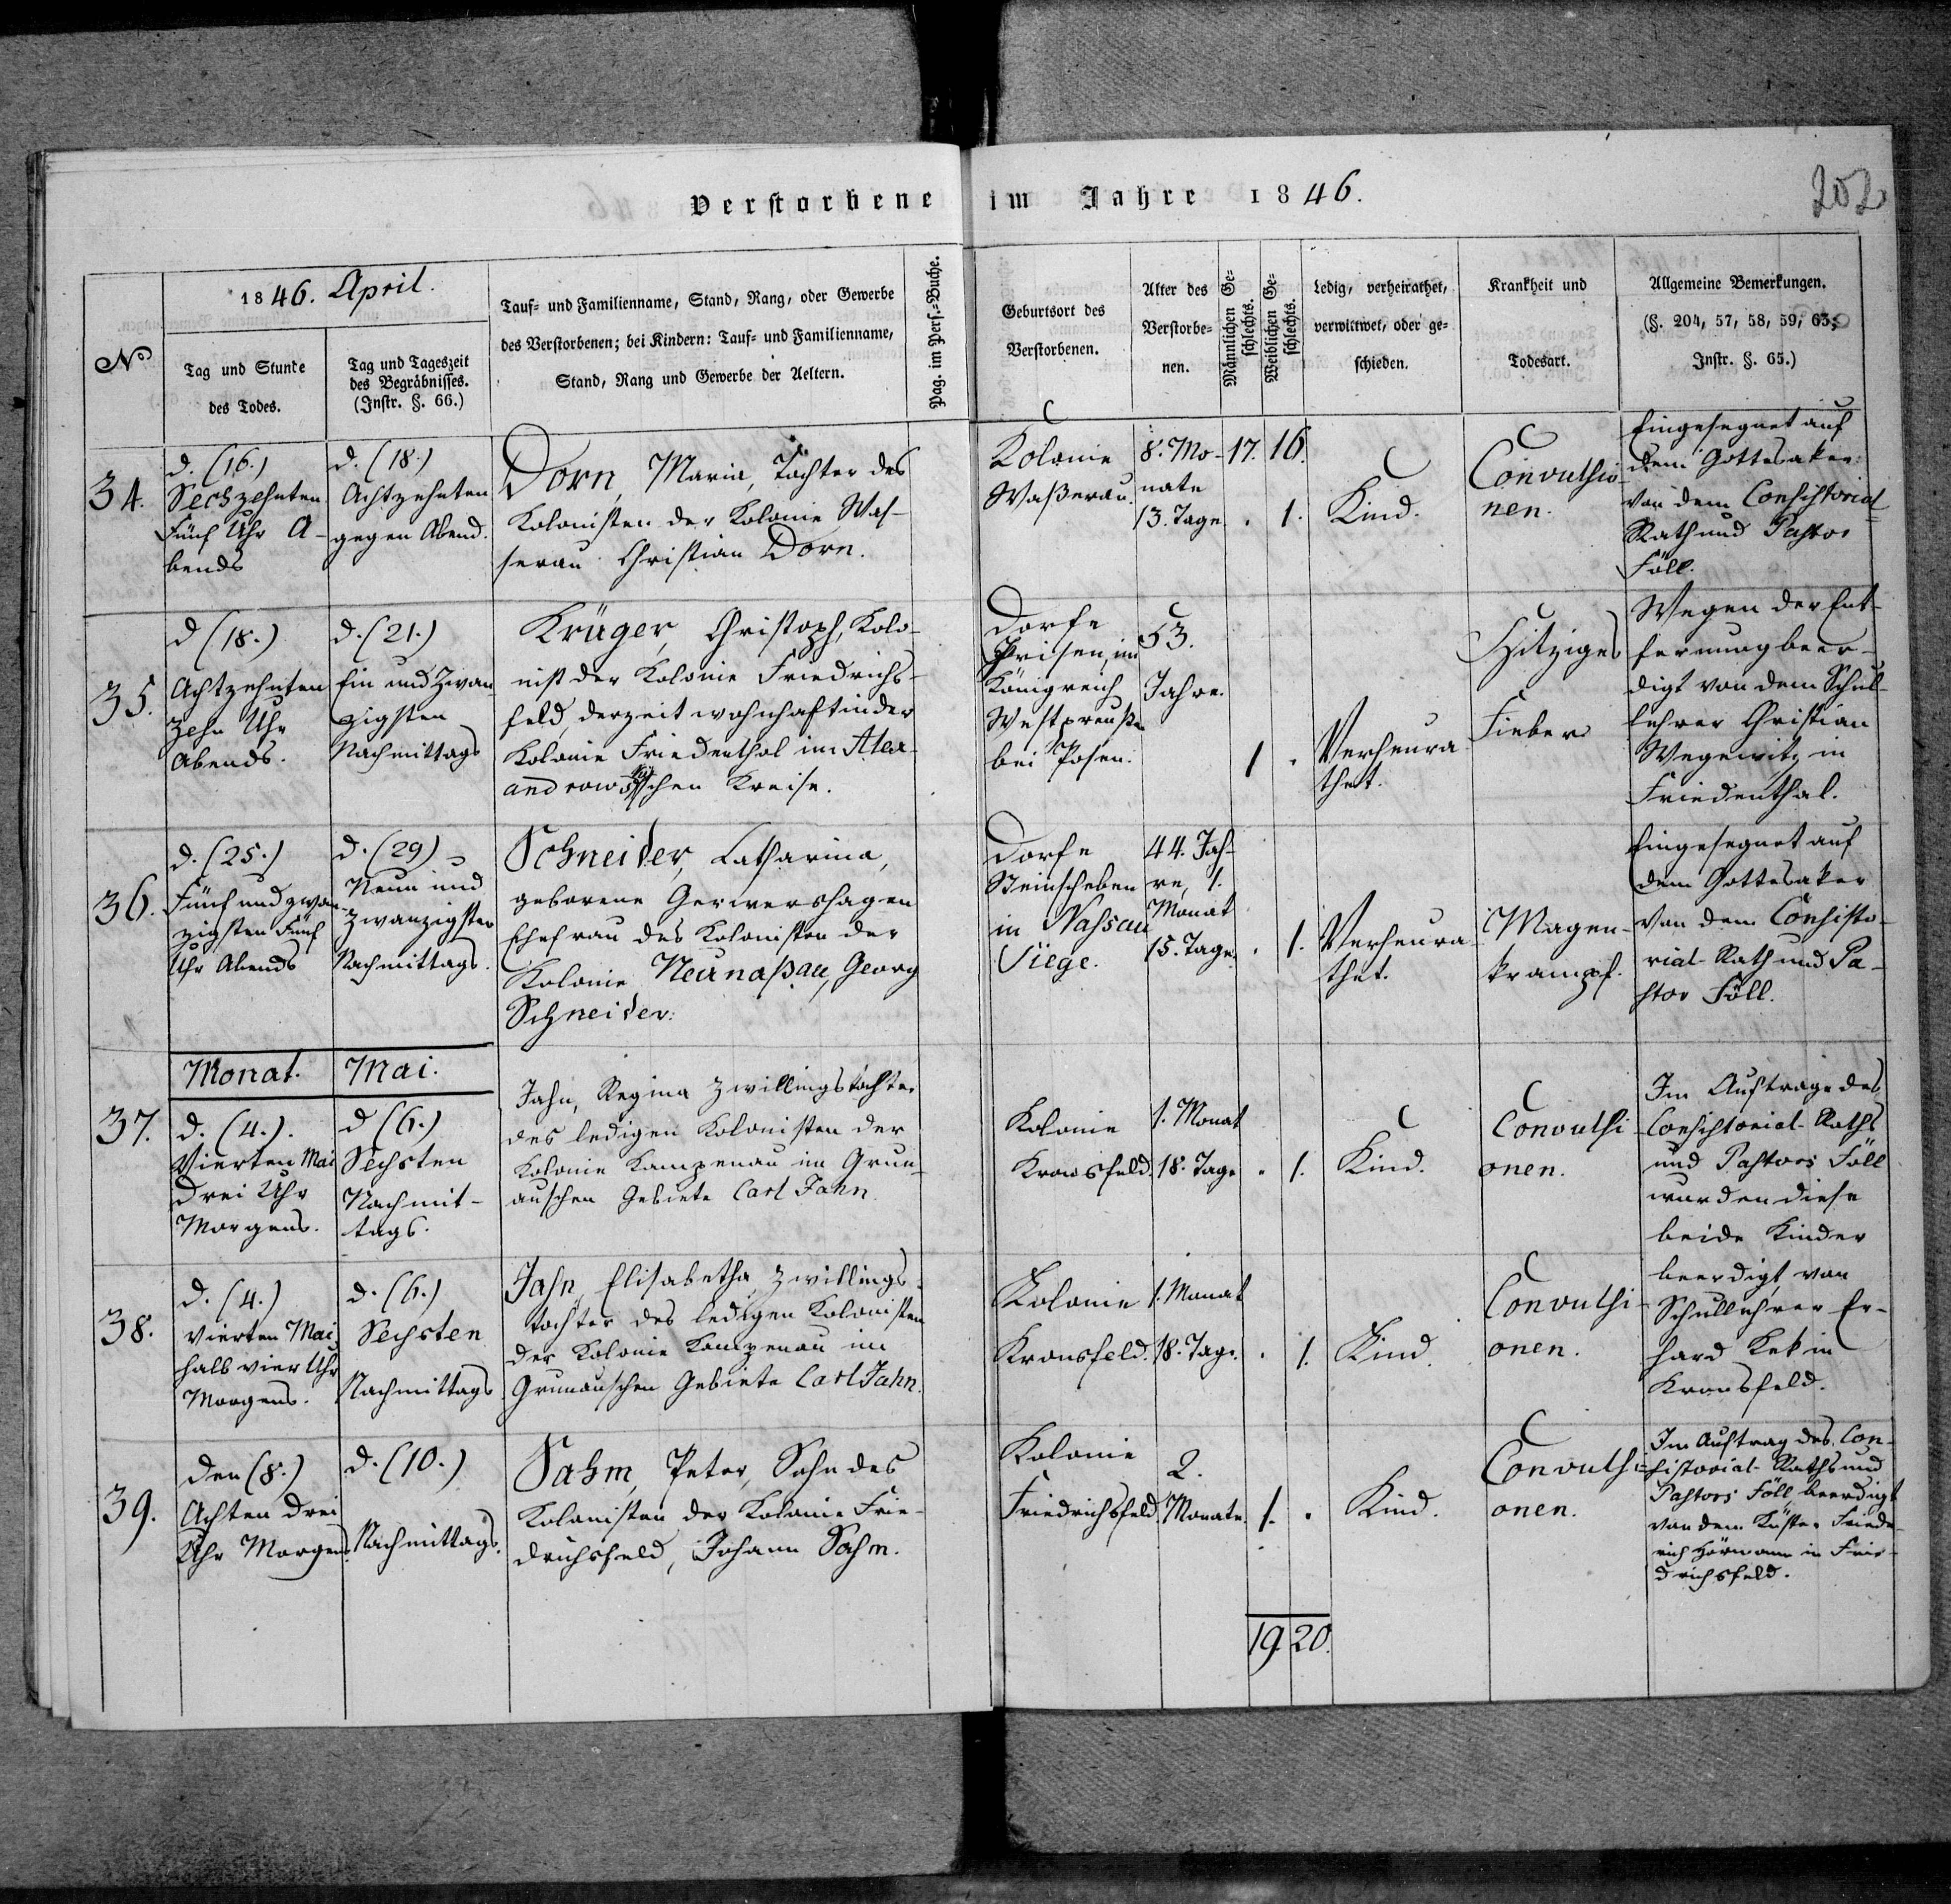 Verstorbene im Jahre 1846.
202
No
1846. April.
Tag und Stunde
des Todes.
Tag und Tageszeit
des Begräbnisses.
(Instr. §. 66.)
Tauf- und Familienname, Stand, Rang, oder Gewerbe
des Verstorbenen; bei Kindern: Tauf- und Familienname,
Stand, Rang und Gewerbe der Aeltern.
Pag. im Pers.-Buche.
Geburtsort des
Verstorbenen.
Alter des
Verstorbe-
nen.
Männlichen Ge-
schlechts.
Weiblichen Ge-
schlechts.
Ledig, verheirathet,
verwittwet, oder ge-
schieden.
Krankheit und
Todesart.
Allgemeine Bemerkungen.
(§. 204, 57, 58, 59, 63;
Instr. §. 65.)
34.
d. (16.)
Sechzehnten
Fünf Uhr A-
bends
d. (18.)
Achtzehnten
gegen Abend.
Dorn, Maria, Tochter des
Kolonisten der Kolonie Was-
serau Christian Dorn.
Kolonie
Waßerau.
8. Mo-
nate
13. Tage.
17. 16.
. 1.
Kind.
Convulsio-
nen.
Eingesegnet auf
dem Gottesaker
von dem Consistorial-
Rath und Pastor
Föll.
35.
d (18.)
Achtzehnten
Zehn Uhr
Abends.
d. (21.)
Ein und Zwan
zigsten
Nachmittags
Krüger, Christoph, Kolo-
nist der Kolonie Friedrichs-
feld, derzeit wohnhaft in der
Kolonie Friedenthal im Alex-
androwschen Kreise.
Dorfe
im
Königreich
Westpreußen
bei Posen.
53.
Jahre.
1 .
Verheura-
thet.
Hitziges
Fieber
Wegen der Ent-
fernung beer-
digt von dem Schul-
lehrer Christian
Wegewitz in
Friedenthal.
36.
d. (25.)
Fünf und zwan-
zigsten Fünf
Uhr Abends
d. (29)
Neun und
zwanzigsten
Nachmittags.
Schneider, Catharina,
geborene Gerwershagen
Ehefrau des Kolonisten der
Kolonie Neunaßau, Georg
Schneider.
Dorfe
Steinscheben
in Nassau
Siege.
44. Jah-
re, 1.
Monat
15. Tage.
. 1.
Verheura-
thet.
Magen-
krampf.
Eingesegnet auf
dem Gottesaker
von dem Consisto-
rial-Rath und Pa-
stor Föll.
Monat. Mai.
37.
d. (4.).
Vierten Mai
Drei Uhr
Morgens.
d (6.)
Sechsten
Nachmit-
tags.
Jahn, Regina Zwillingstochter
des ledigen Kolonisten der
Kolonie Kampenau im Grun-
auschen Gebiete Carl Jahn.
Kolonie
Kronsfeld.
1. Monat
18. Tage
. 1.
Kind.
Convulsi-
onen.
Im Auftrage des
Consistorial-Raths
und Pastors Föll
wurden diese
beide Kinder
beerdigt, von
Schullehrer Er-
hard Kek in
Kronsfeld.
38.
d. (4.)
Vierten Mai,
halb vier Uhr
Morgens.
d. (6.)
Sechsten
Nachmittags
Jahn, Elisabetha Zwillings-
tochter des ledigen Kolonisten
der Kolonie Kampenau im
Grunauschen Gebiete Carl Jahn.
Kolonie
Kronsfeld.
1. Monat
18. Tage.
. 1.
Kind.
Convulsi-
onen.
39.
den (8.)
Achten Drei
Uhr Morgens.
d. (10.)
Nachmittags.
Sahm, Peter, Sohn des
Kolonisten der Kolonie Frie-
drichsfeld, Johann Sahm.
Kolonie
Friedrichsfeld
2.
Monate.
1. .
Kind.
Convulsi-
onen.
Im Auftrag des Con-
sistorial-Raths und
Pastors Föll beerdigt
von dem Küster Friede-
rich Hörmann in Frie-
drichsfeld.
19 20.